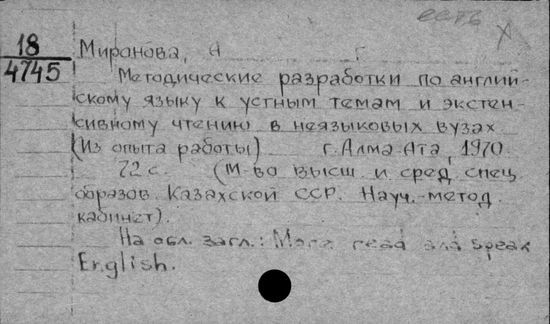 18
4745
Миронова, А Г
Методические разработки по англий-
скому языку к устным темам и экстен-
сивному чтению в неязыковых вузах
(Из опыта работы) г. Алма-Ата, 1970.
72 с. (М-во высш. и сред. спец.
образов. Казахской ССР. Науч.-метод.
кабинет).
На обл. загл.: More read and speak
English.